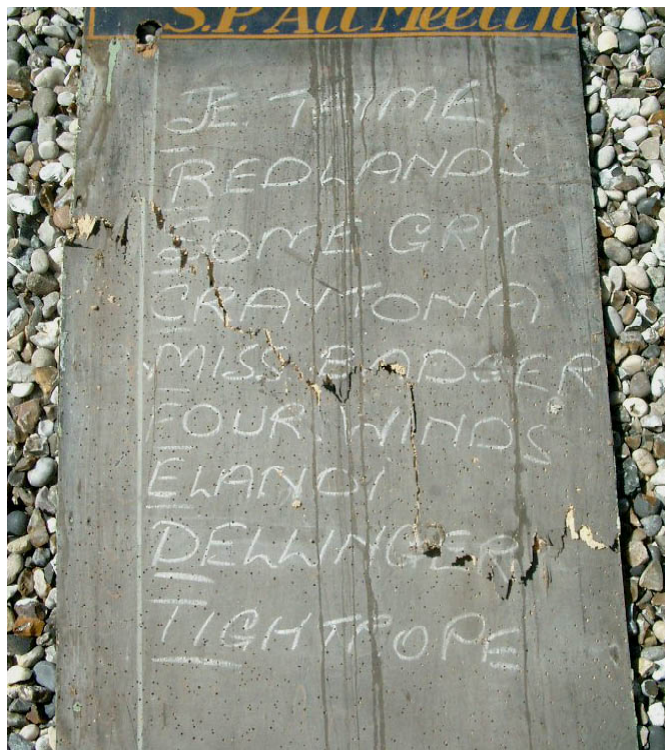 S.P. All Meetin
JE TAIME
REDLANDS
SOME GRIT
CRAYTONA
MISS BADGER
FOUR WINDS
ELANDI
DELLINGER
TIGHTROPE